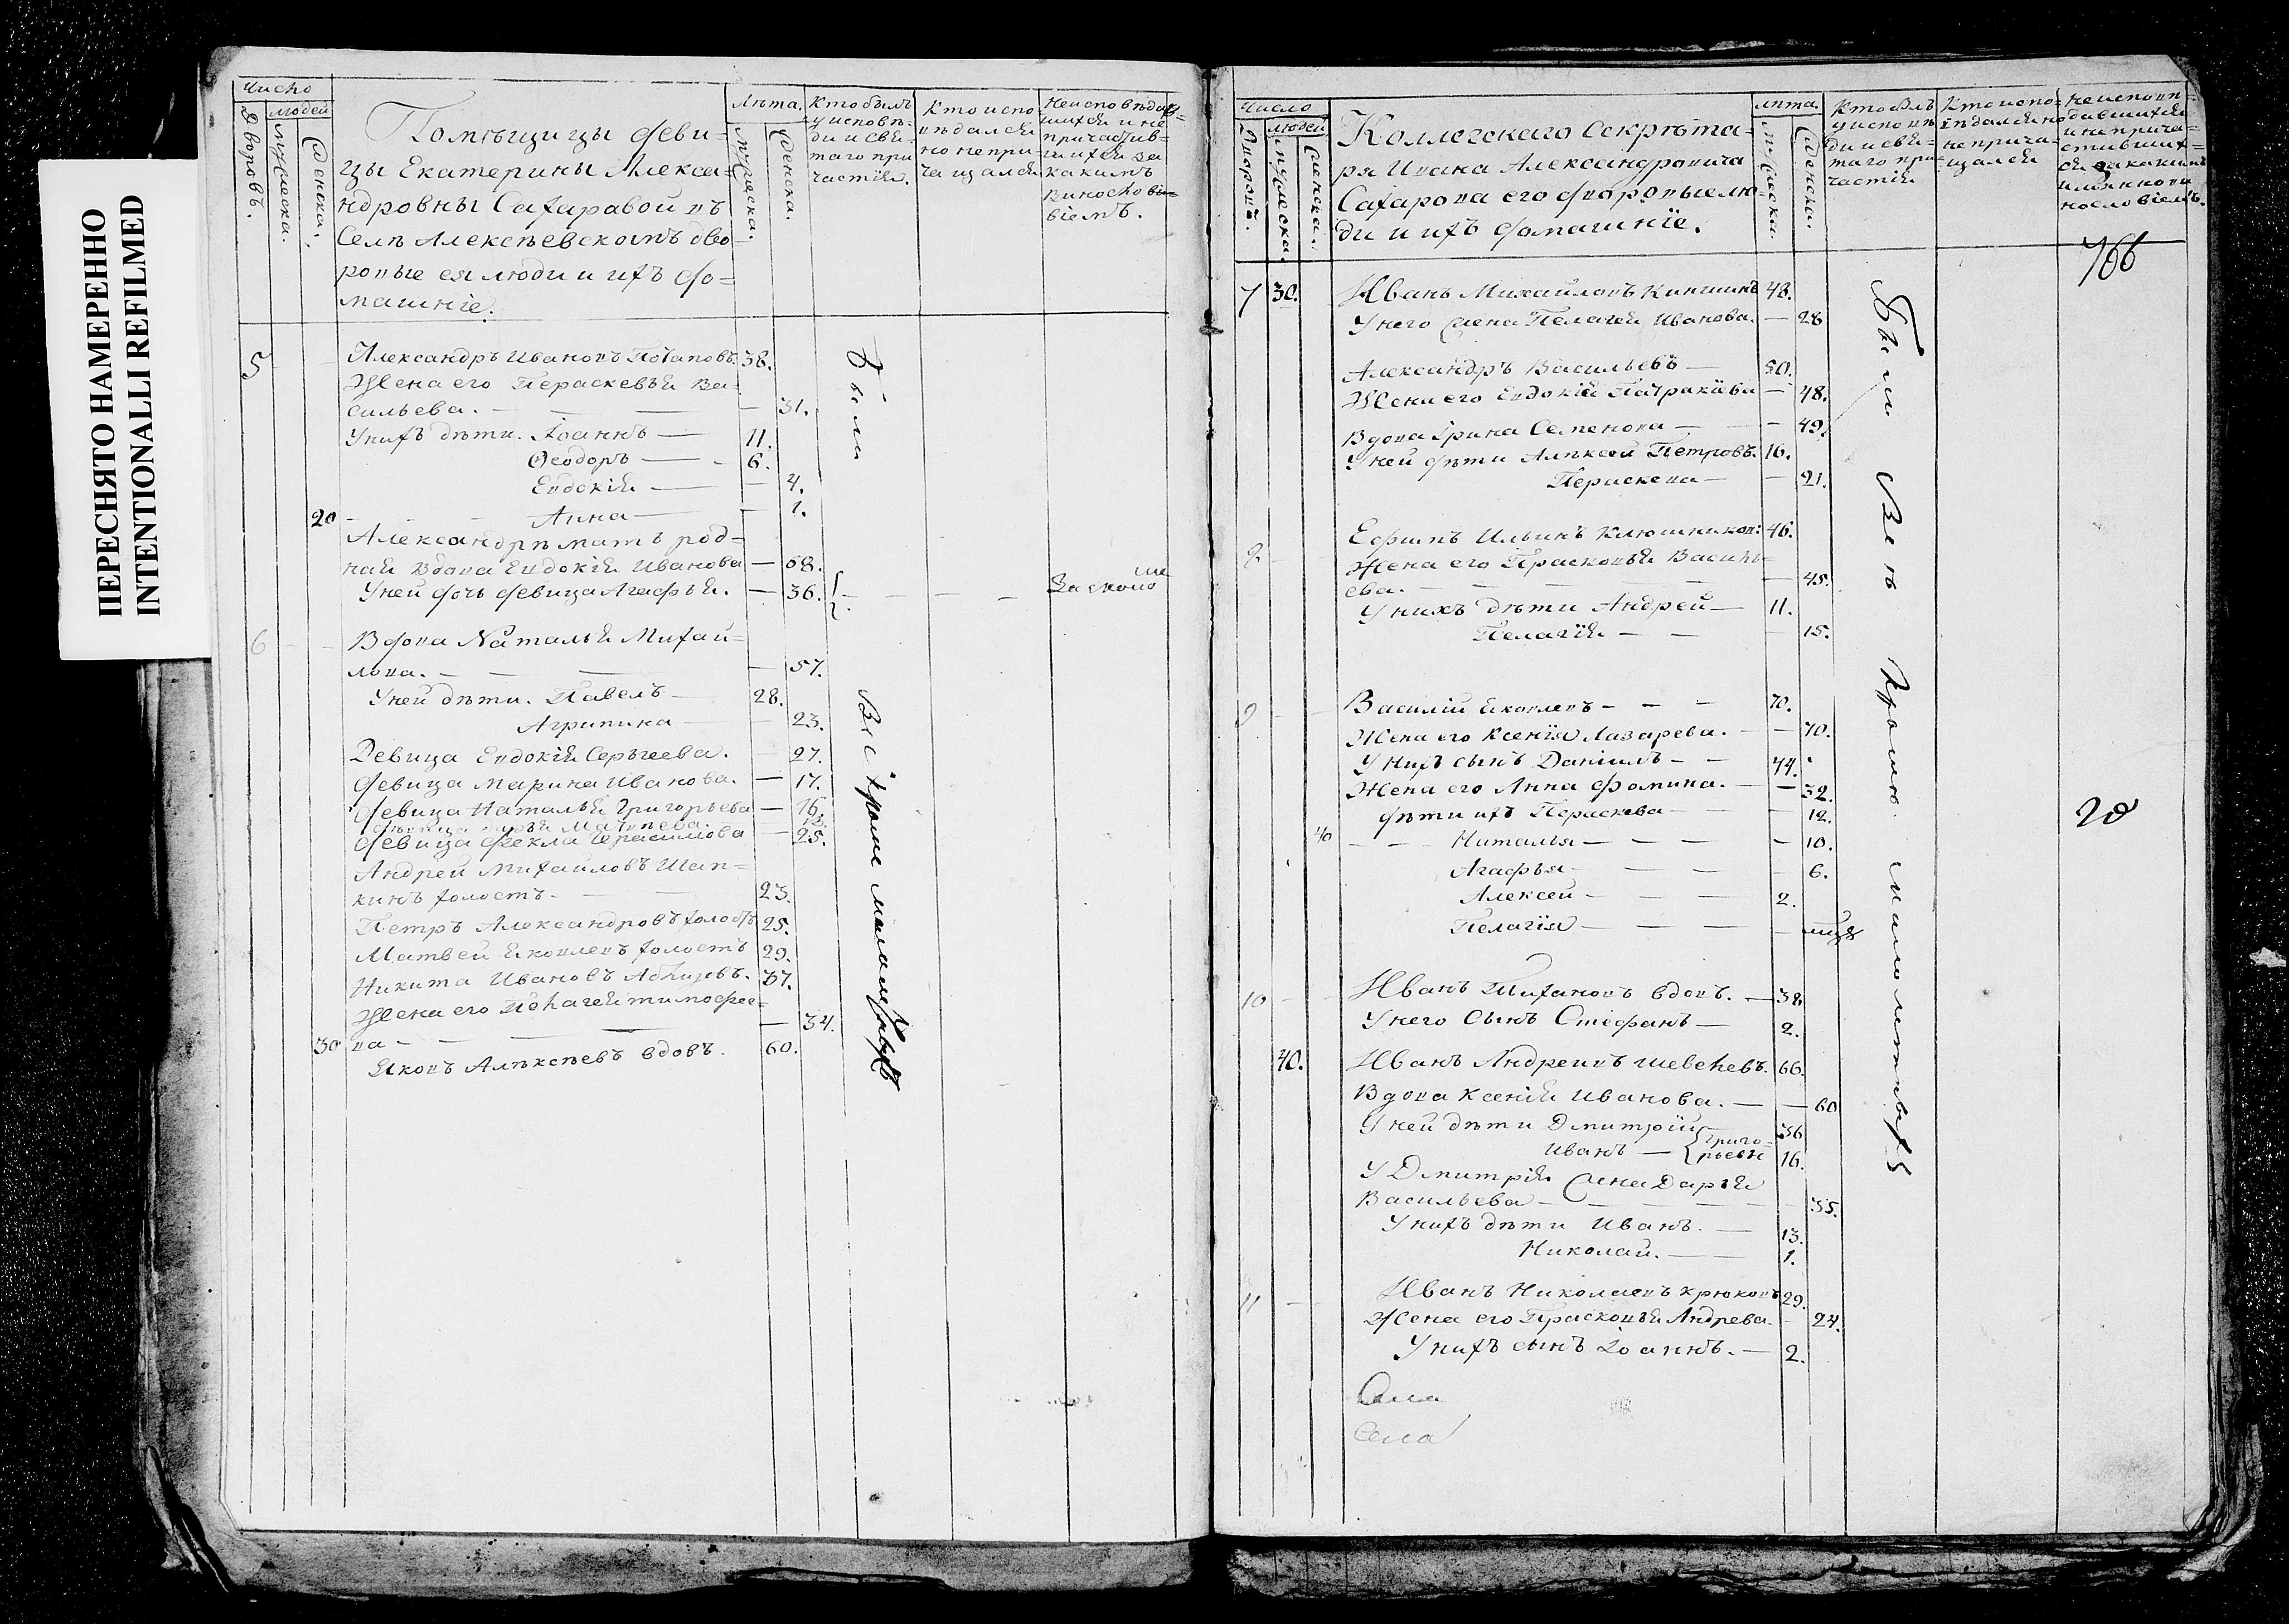 ПЕРЕСНЯТО НАМЕРЕННО
INTENTIONALLI REFILMED
Число
людей
Дворовъ.
мужеска.
женска.
Помѣщицы деви-
цы Екатерины Алекса-
ндровны Сахаравой въ
Селѣ Алексѣевскомъ дво-
ровые ея люди и ихъ до-
машніе.
Лѣта.
мужеска.
женска.
Кто былъ
у исповѣ-
ди и свя-
таго при
частія.
Кто испо
вѣдался
но не при-
чащался
Неисповѣдав-
шихся и не
причастив-
шихся за
какимъ
виносло
віемъ.
5 Александръ Ивановъ Потаповъ. 38.
Жена его Параскевья Ва-
сильева. — 31.
У нихъ дѣти. Іоаннъ — 11.
Ѳеодоръ — 6.
Евдокія — 4.
20 Анна — 1.
Александръ мать род-
ная вдова Евдокія Иванова — 68.
У ней дочь девица Агафья. — 36.
6 Вдова Наталья Михай-
лова. — 57.
У ней дѣти. Павелъ — 28.
Агрипина — 23.
Девица Евдокія Сергѣева. — 27.
девица Марина Иванова. — 17.
девица Наталья Григорьева — 16.
девица Фекла Герасимова — 25.
Андрей Михаиловъ Шап-
кинъ холостъ. — 23.
Петръ Александровъ холостъ 25.
Матвей Яковлевъ холостъ 29.
Никита Ивановъ 37.
Жена его Пелагея тимофее-
30 ва — 34.
Яковъ Алѣксѣевъ вдовъ. 60.
Были
Все кроме малолѣтныхъ
Число
людей
Дворовъ.
мужеска
женска.
Коллегскаго Секрѣта-
ря Ивана Александровича
Сахарова его дворовые лю-
ди и ихъ домашнiе.
лѣта.
мужеска.
женска.
Кто былъ
у исповѣ
ди и свя-
таго при-
частія
Кто испо-
вѣдался но
не прича-
щался
не исповѣ-
давшихся
и не прича-
стивших-
ся за какимъ
766
7 30. Иванъ Михайловъ 48.
У него жена Пелагея Иванова. — 28
Александръ Васильевъ — 50.
Жена его Евдокія Патракiева — 48.
Вдова Ірина Семенова — 49.
У ней дѣти Алѣксей Петровъ. 16.
Параскева — 21.
8 Ефимъ Ильинъ Ключников: 46.
Жена его Прасковья Василь-
ева. — 45.
У нихъ дѣти Андрей — 11.
Пелагiя — 15.
9 Василий Яковлевъ — 70.
Жена его Ксенiя Лазарева. — 70.
У нихъ сынъ Данiилъ — 44.
Жена его Анна Фомина. — 32.
дѣти ихъ Параскева — 12.
40 Наталья — 10.
Агафья — 6.
Алексей — 2.
Пелагiя —
10 Иванъ вдовъ. — 38
У него Сынъ Стефанъ — 2.
40. Иванъ Андреевъ Шевелевъ. 66.
Вдова Ксенiя Иванова. — 60
У ней дѣти Дмитрій 36
Иванъ — Григо-
рьевы 16.
У Дмитрія жена Дарья
Васильева — 35.
У нихъ дѣти Иванъ. — 13.
Николай. — 1.
11 Иванъ Николаевъ Крюковъ 29.
Жена его Прасковья Андрева. 24.
У нихъ сынъ Іоаннъ. — 2.
Села
Были Все кромѣ малолетныхъ
20